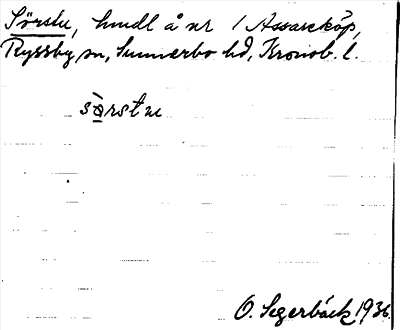 Sörstu, hmdl å nr 1 Assarsköp,
Ryssby sn, Sunnerbo hd, Kronob. l.
sòrstu
O. Segerbäck 1936.